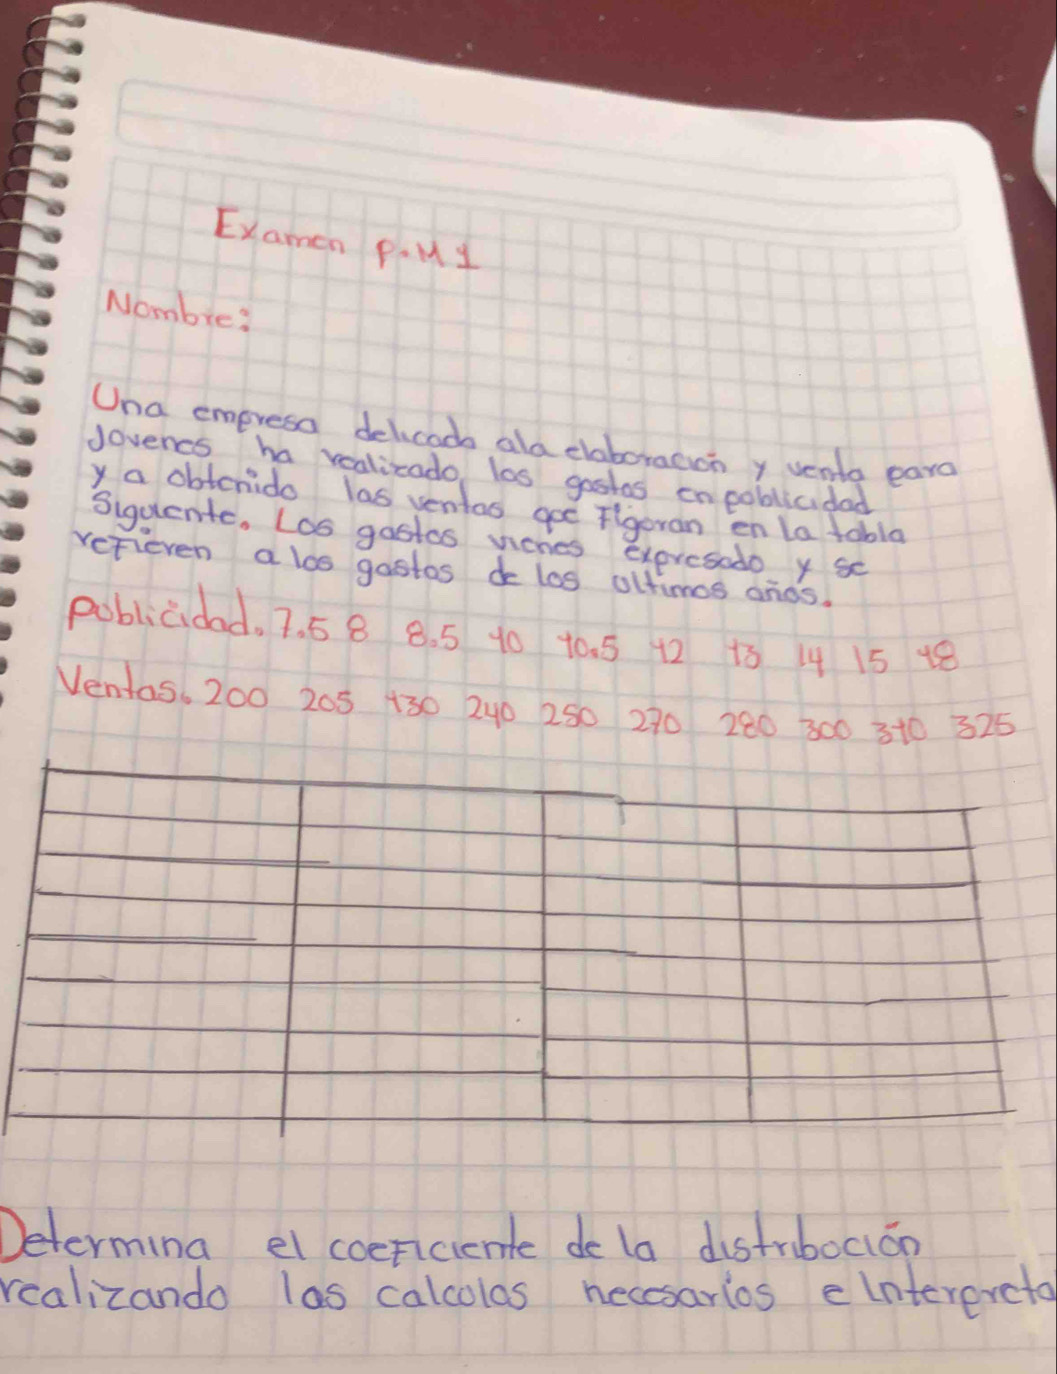 Examen P.M 1
Nombre:
Una empresa delicada ala elaboración y venta para
Jovenes ha realizado los gastos en poblicidad
y a obtenido las ventas que Figoran en la tabla
Siguiente. Los gastos vienes expresado y se
reFieren a los gastos de los oltimos años.
Poblicidad. 7.5 8 8.5 10 10.5 12 13 14 15 18
Ventas. 200 205 130 240 250 270 280 300 310 325
Determina el coeFiciente de la distriboción
realizando las calcolos necesarios e interpreta